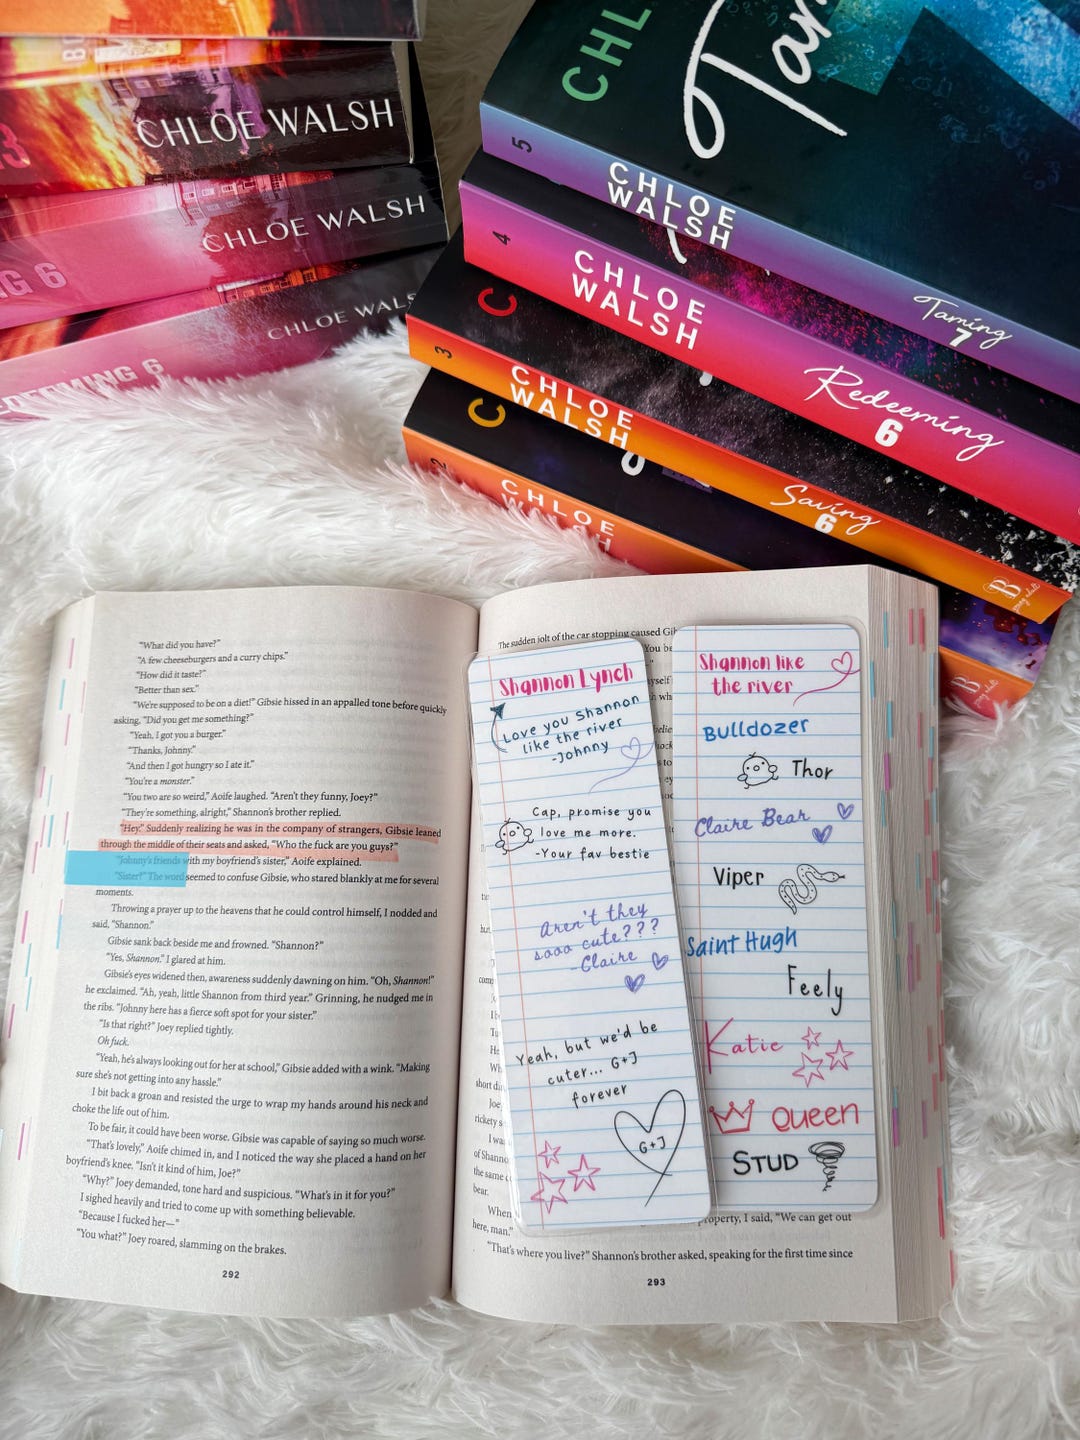 3
CHLOE WALSH
G 6
CHLOE WALSH
EEMING 6
CHLOE WALS
CHL
Tam
5
CHLOE
WALSH
Taming
7
4
CHLOE
WALSH
Redeeming
6
C
3
CHLOE
WALSH
Saving
6
B
C
2
CHLOE
WALSH
B
"What did you have?"
"A few cheeseburgers and a curry chips."
"How did it taste?"
"Better than sex."
"We're supposed to be on a diet!" Gibsie hissed in an appalled tone before quickly
asking, "Did you get me something?"
"Yeah, I got you a burger."
"Thanks, Johnny."
"And then I got hungry so I ate it."
"You're a monster."
"You two are so weird," Aoife laughed. "Aren't they funny, Joey?"
"They're something, alright," Shannon's brother replied.
"Hey." Suddenly realizing he was in the company of strangers, Gibsie leaned
through the middle of their seats and asked, "Who the fuck are you guys?"
"Johnny's friends with my boyfriend's sister," Aoife explained.
"Sister?" The word seemed to confuse Gibsie, who stared blankly at me for several
moments.
Throwing a prayer up to the heavens that he could control himself, I nodded and
said, "Shannon."
Gibsie sank back beside me and frowned. "Shannon?"
"Yes, Shannon." I glared at him.
Gibsie's eyes widened then, awareness suddenly dawning on him. "Oh, Shannon!"
he exclaimed. "Ah, yeah, little Shannon from third year." Grinning, he nudged me in
the ribs. "Johnny here has a fierce soft spot for your sister."
"Is that right?" Joey replied tightly.
Oh fuck.
"Yeah, he's always looking out for her at school," Gibsie added with a wink. "Making
sure she's not getting into any hassle."
I bit back a groan and resisted the urge to wrap my hands around his neck and
choke the life out of him.
To be fair, it could have been worse. Gibsie was capable of saying so much worse.
"That's lovely," Aoife chimed in, and I noticed the way she placed a hand on her
boyfriend's knee. "Isn't it kind of him, Joe?"
"Why?" Joey demanded, tone hard and suspicious. "What's in it for you?"
I sighed heavily and tried to come up with something believable.
"Because I fucked her—"
"You what?" Joey roared, slamming on the brakes.
292
The sudden jolt of the car stopping caused Gib
Shannon Lynch
Love you Shannon
like the river
-Johnny
Cap, promise you
love me more.
-Your fav bestie
Aren't they
sooo cute???
-Claire
Yeah, but we'd be
cuter... G+J
forever
G+J
Shannon like
the river
Bulldozer
Thor
Claire Bear
Viper
Saint Hugh
Feely
Katie
Queen
STUD
short da
Joe
rickety s
I wa
of Shanno
the same c
bear.
When
here, man."
property, I said, "We can get out
"That's where you live?" Shannon's brother asked, speaking for the first time since
293